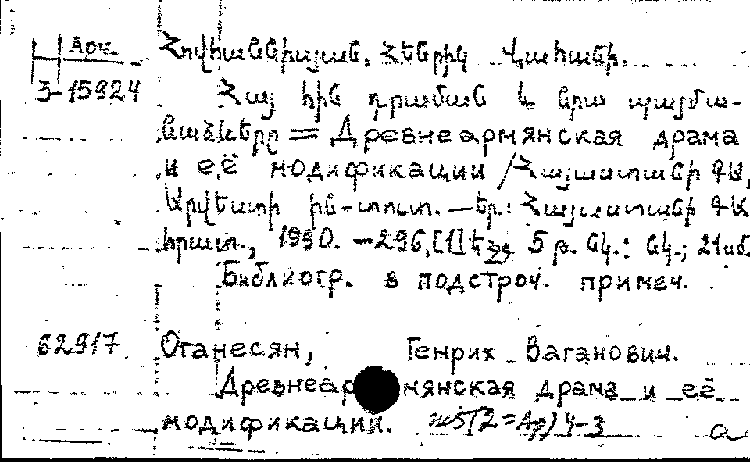 Арм.
Հովհաննիսյան, Հենրիկ Վահանի.
3-15924
Հայ հին դրաման և նրա պայմա-
նաձևերը = Древнеармянская драма
и её модификации / Հայաստանի ԳԱ,
Արվեստի ին-տուտ. — Եր.: Հայաստանի ԳԱ
հրատ., 1990. — 296,[1] էջ 5 թ. նկ.: նկ.; 21սմ.
Библиогр. в подстроч. примеч.
62917. Оганесян, Генрих Ваганович.
Древнеармянская драма и её
модификации.